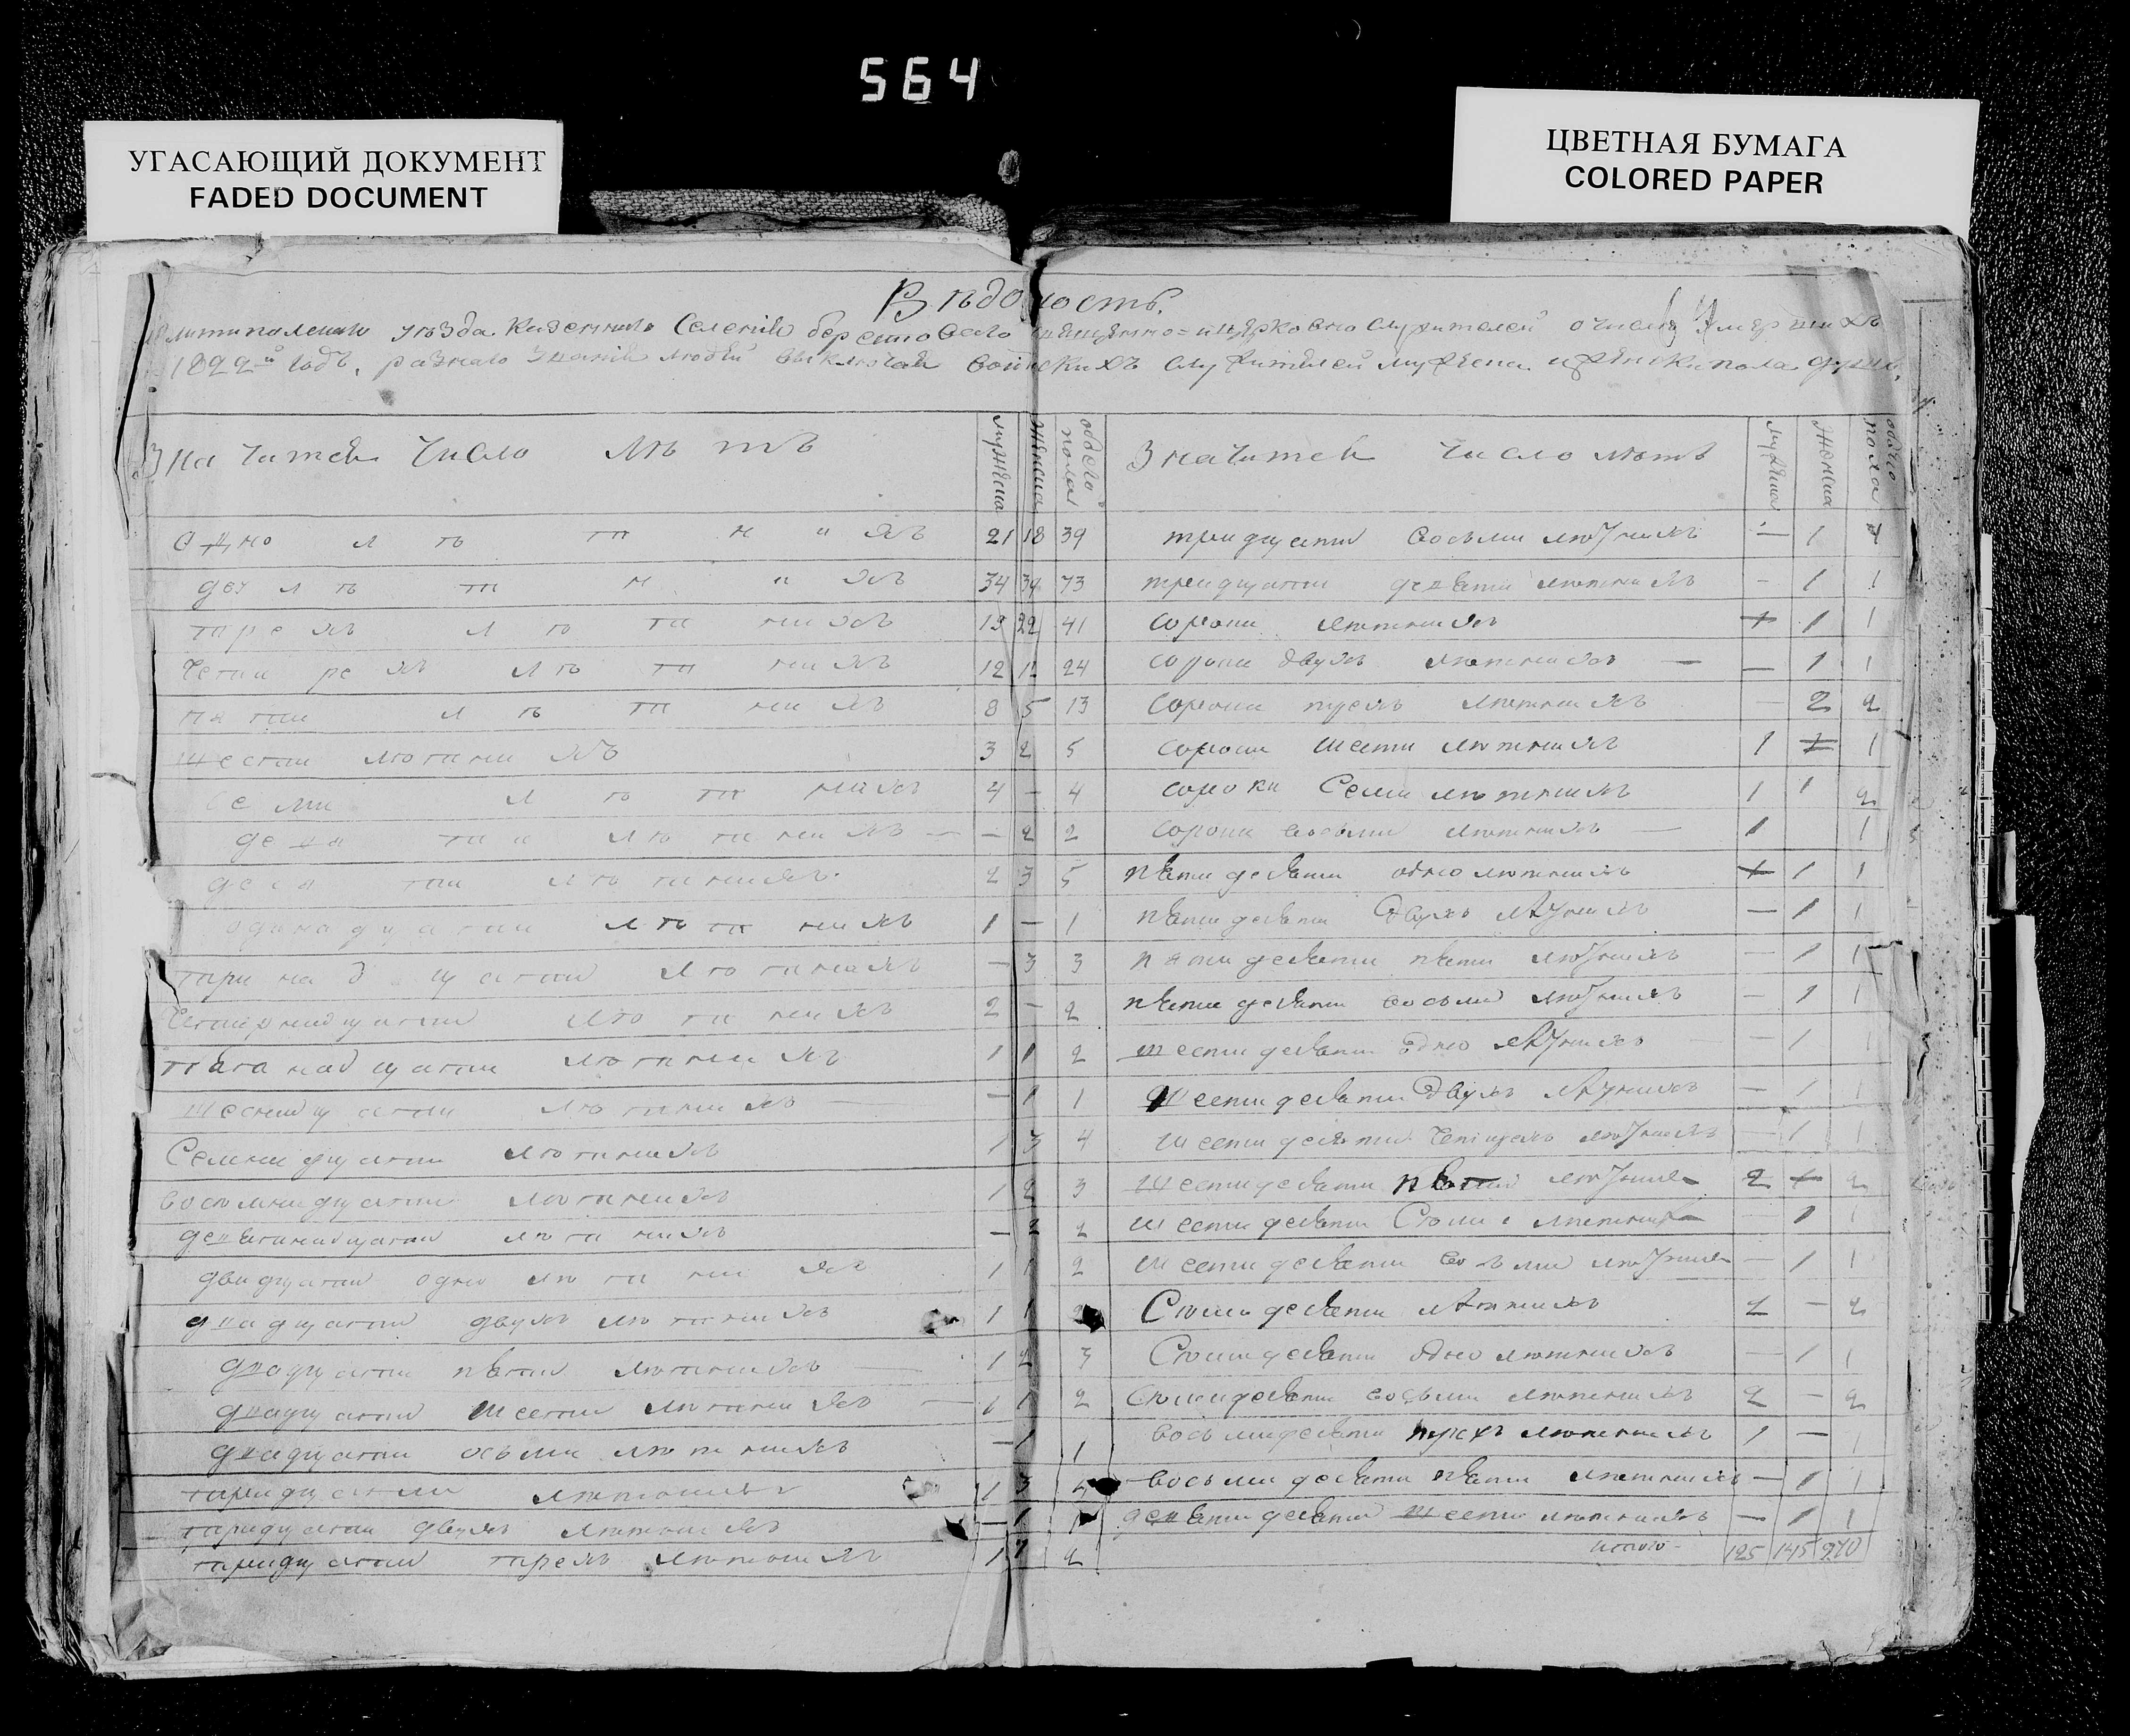 564
УГАСАЮЩИЙ ДОКУМЕНТ
FADED DOCUMENT
ЦВЕТНАЯ БУМАГА
COLORED PAPER
Вѣдомость.
уѣзда Казеннаго Селенія берестоваго священно=и церковно служителей о числѣ умершихъ
1822го годъ, разнаго Званія людей выключая воинскихъ служителей мужеска и женска пола душъ.
Значитса Число лѣтъ
мужеска
женска
обоего пола
одно лѣтнихъ 21 18 39
дву лѣтнихъ 34 39 73
трехъ лѣтнихъ 19 22 41
четирехъ лѣтнихъ 12 12 24
пяти лѣтнихъ 8 5 13
шести лѣтнихъ 3 2 5
семи лѣтнихъ 4 - 4
девяти лѣтнихъ - 2 2
десяти лѣтнихъ 2 3 5
одинадцати лѣтнихъ 1 - 1
тринадцати лѣтнихъ - 3 3
Четирнадцати лѣтнихъ 2 - 2
пятнадцати лѣтнихъ 1 1 2
шеснадцати лѣтнихъ - 1 1
Семнадцати лѣтнихъ 1 3 4
восѣмнадцати лѣтнихъ 1 2 3
девятнадцати лѣтнихъ - 2 2
двадцати одно лѣтнихъ 1 1 2
двадцати двухъ лѣтнихъ 1 1 2
двадцати пяти лѣтнихъ 1 2 3
двадцати шести лѣтнихъ 1 1 2
двадцати осьми лѣтнихъ - 1 1
тридцати лѣтнихъ 1 3 4
тридцати двухъ лѣтнихъ - 1 1
тридцати трехъ лѣтнихъ 1 1 2
Значитса число лѣтъ
мужеска
женска
обоего пола
тридцати восьми лѣтнихъ - 1 1
тридцати девяти лѣтнихъ - 1 1
сорока лѣтнихъ - 1 1
сорока двухъ лѣтнихъ - 1 1
сорока трехъ лѣтнихъ - 2 2
сорока шести лѣтнихъ 1 - 1
сорока Семи лѣтнихъ 1 1 2
сорока восьми лѣтнихъ 1 1
пятидесяти одно лѣтнихъ - 1 1
пятидесяти двухъ лѣтнихъ - 1 1
пятидесяти пяти лѣтнихъ - 1 1
пятидесяти восьми лѣтнихъ - 1 1
шестидесяти одно лѣтнихъ - 1 1
шестидесяти двухъ лѣтнихъ - 1 1
шестидесяти четирехъ лѣтнихъ - 1 1
шестидесяти пяти лѣтних 2 - 2
шестидесяти Сѣми лѣтних 1 1
шестидесяти восьми лѣтних - 1 1
Сѣмидесяти лѣтнихъ 2 - 2
Сѣмидесяти одно лѣтнихъ - 1 1
Сѣмидесяти восьми лѣтнихъ 2 - 2
восьмидесяти трехъ лѣтнихъ 1 - 1
восьмидесяти пяти лѣтнихъ - 1 1
девятидесяти шести лѣтнихъ - 1 1
итого 125 145 270